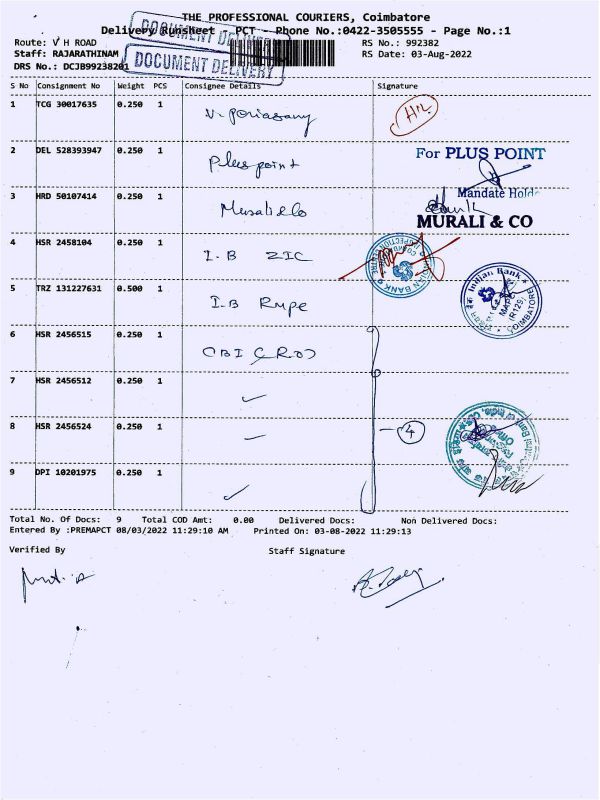 THE PROFESSIONAL COURIERS, Coimbatore
Delivery Runsheet - PCT - Phone No.:0422-3505555 - Page No.:1
DOCUMENT DELIVERY
Route: V H ROAD
RS No.: 992382
Staff: RAJARATHINAM
RS Date: 03-Aug-2022
DOCUMENT DELIVERY
DRS No.: DCJB99238201
S No Consignment No Weight PCS Consignee Details Signature
1 TCG 30017635 0.250 1
2 DEL 528393947 0.250 1 Plus point
For PLUS POINT
Mandate Holde
3 HRD 50107414 0.250 1
MURALI & CO
4 HSR 2458104 0.250 1 I.B ZIC
INDIAN BANK
INSPECTION CENTRE
5 TRZ 131227631 0.500 1 I.B Rupe
Indian Bank
COIMBATORE
6 HSR 2456515 0.250 1
7 HSR 2456512 0.250 1
8 HSR 2456524 0.250 1
4
Central Bank of India
9 DPI 10201975 0.250 1
Total No. Of Docs: 9 Total COD Amt: 0.00 Delivered Docs: Non Delivered Docs:
Entered By :PREMAPCT 08/03/2022 11:29:10 AM Printed On: 03-08-2022 11:29:13
Verified By Staff Signature